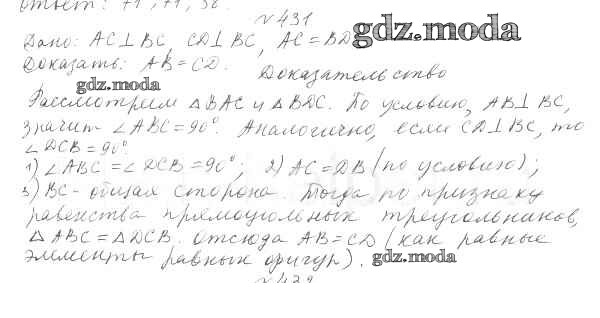 Ответ: 71°, 71°, 38°.
№431
gdz.moda
Дано: AC⊥BC, CD⊥BC, AC=BD
Доказать: AB=CD.
gdz.moda
Доказательство
Рассмотрим △BAC и △BDC. По условию, AB⊥BC,
значит ∠ABC=90°. Аналогично, если CD⊥BC, то
∠DCB=90°
1) ∠ABC=∠DCB=90°; 2) AC=DB (по условию);
3) BC- общая сторона. Тогда по признаку
равенства прямоугольных треугольников,
△ABC=△DCB. Отсюда AB=CD (как равные
элементы равных фигур).
gdz.moda